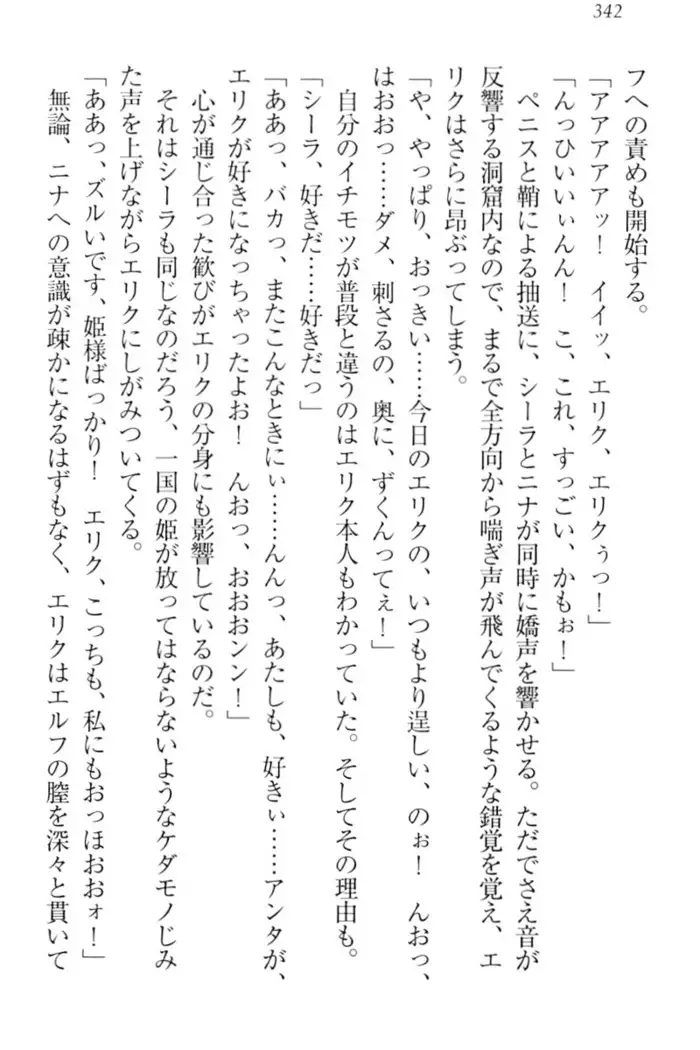 342
フへの責めも開始する。
「アアアアアッ！　イイッ、エリク、エリクぅっ！」
「んっひいいぃんん！　こ、これ、すっごい、かもぉ！」
　ペニスと鞘による抽送に、シーラとニナが同時に嬌声を響かせる。ただでさえ音が
反響する洞窟内なので、まるで全方向から喘ぎ声が飛んでくるような錯覚を覚え、エ
リクはさらに昂ぶってしまう。
「や、やっぱり、おっきい……今日のエリクの、いつもより逞しい、のぉ！　んおっ、
はおおっ……ダメ、刺さるの、奥に、ずくんってぇ！」
　自分のイチモツが普段と違うのはエリク本人もわかっていた。そしてその理由も。
「シーラ、好きだ……好きだっ」
「ああっ、バカっ、またこんなときにぃ……んんっ、あたしも、好きぃ……アンタが、
エリクが好きになっちゃったよお！　んおっ、おおおンン！」
　心が通じ合った歓びがエリクの分身にも影響しているのだ。
　それはシーラも同じなのだろう、一国の姫が放ってはならないようなケダモノじみ
た声を上げながらエリクにしがみついてくる。
「ああっ、ズルいです、姫様ばっかり！　エリク、こっちも、私にもおっほおおォ！」
　無論、ニナへの意識が疎かになるはずもなく、エリクはエルフの膣を深々と貫いて